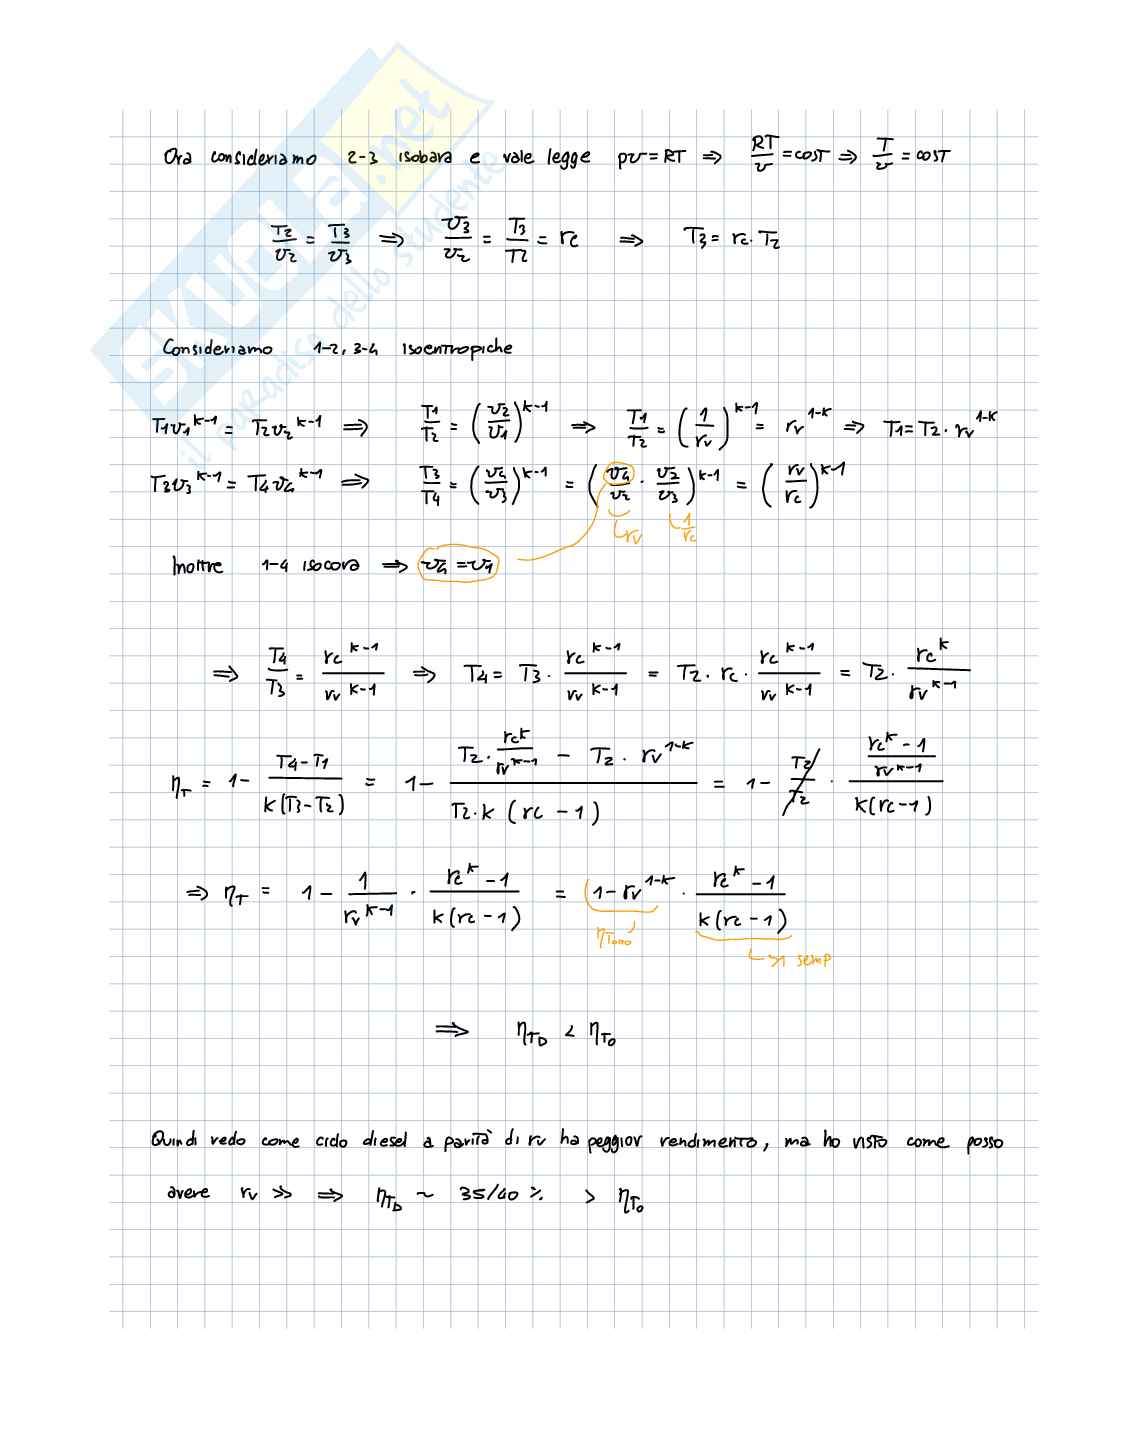 SKUOLA.net
il paradiso dello studente
Ora consideriamo 2-3 isobara e vale legge pv = RT ⇒ RT/v = cost ⇒ T/v = cost
T2/v2 = T3/v3 ⇒ v3/v2 = T3/T2 = rc ⇒ T3 = rc · T2
Consideriamo 1-2, 3-4 isoentropiche
T1v1^k-1 = T2v2^k-1 ⇒ T1/T2 = (v2/v1)^k-1 ⇒ T1/T2 = (1/rv)^k-1 = rv^1-k ⇒ T1 = T2 · rv^1-k
T3v3^k-1 = T4v4^k-1 ⇒ T3/T4 = (v4/v3)^k-1 = (v4/v2 · v2/v3)^k-1 = (rv/rc)^k-1
rv 1/rc
Inoltre 1-4 isocora ⇒ v4 = v1
⇒ T4/T3 = rc^k-1/rv^k-1 ⇒ T4 = T3 · rc^k-1/rv^k-1 = T2 · rc · rc^k-1/rv^k-1 = T2 · rc^k/rv^k-1
ηT = 1 - (T4 - T1)/(k(T3 - T2)) = 1 - (T2 · rc^k/rv^k-1 - T2 · rv^1-k)/(T2 · k (rc - 1)) = 1 - T2/T2 · ((rc^k - 1)/rv^k-1)/(k(rc - 1))
⇒ ηT = 1 - 1/rv^k-1 · (rc^k - 1)/(k(rc - 1)) = 1 - rv^1-k · (rc^k - 1)/(k(rc - 1))
>1 semp
⇒ ηTD < ηTO
Quindi vedo come ciclo diesel a parità di rv ha peggior rendimento, ma ho visto come posso
avere rv >> ⇒ ηTD ~ 35/40 % > ηTO